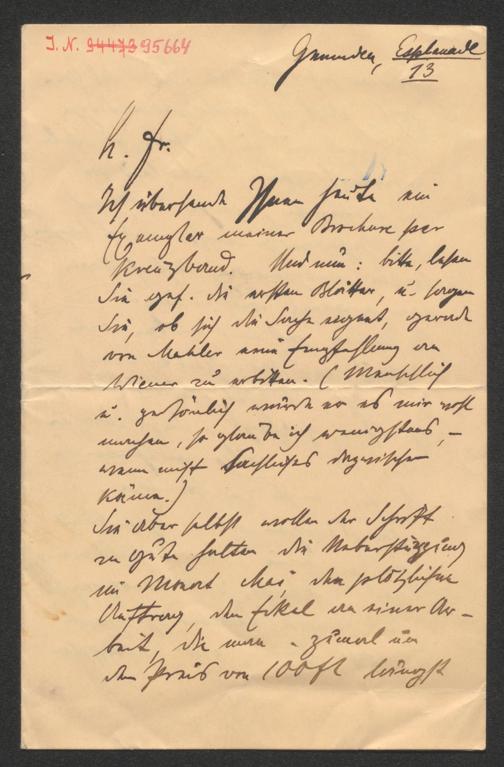 I. N. 94473 95664
Gmunden, Esplanade
13
h. Fr.
Ich übersende Ihnen heute ein
Exemplar meiner Brochure per
Kreuzband. Und nun: bitte, lesen
Sie gef. die ersten Blätter, u. sagen
Sie, ob sich die Sache eignet, gerade
von Mahler eine Empfehlung an
Wiener zu erbitten. (Menschlich
u. persönlich würde er es mir wohl
machen, so glaube ich wenigstens, –
wenn nicht Sachliches dazwischen
käme.)
Sie aber selbst wollen der Schrift
zu Gute halten die Ueberstürzung
im Monat Mai, den plötzlichen
Auftrag, den Ekel an einer Ar-
beit, die man – zumal um
den Preis von 100 fl längst